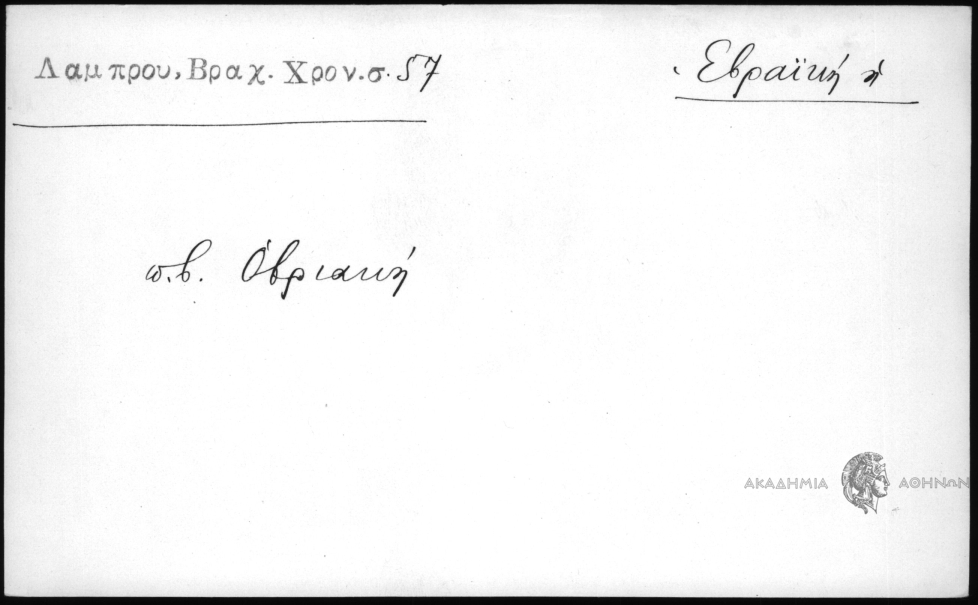 Λαμπρου, Βραχ. Χρον. σ. 57
Ἑβραϊκή ἡ
π.β. Ὀβριακή
ΑΚΑΔΗΜΙΑ ΑΘΗΝΩΝ